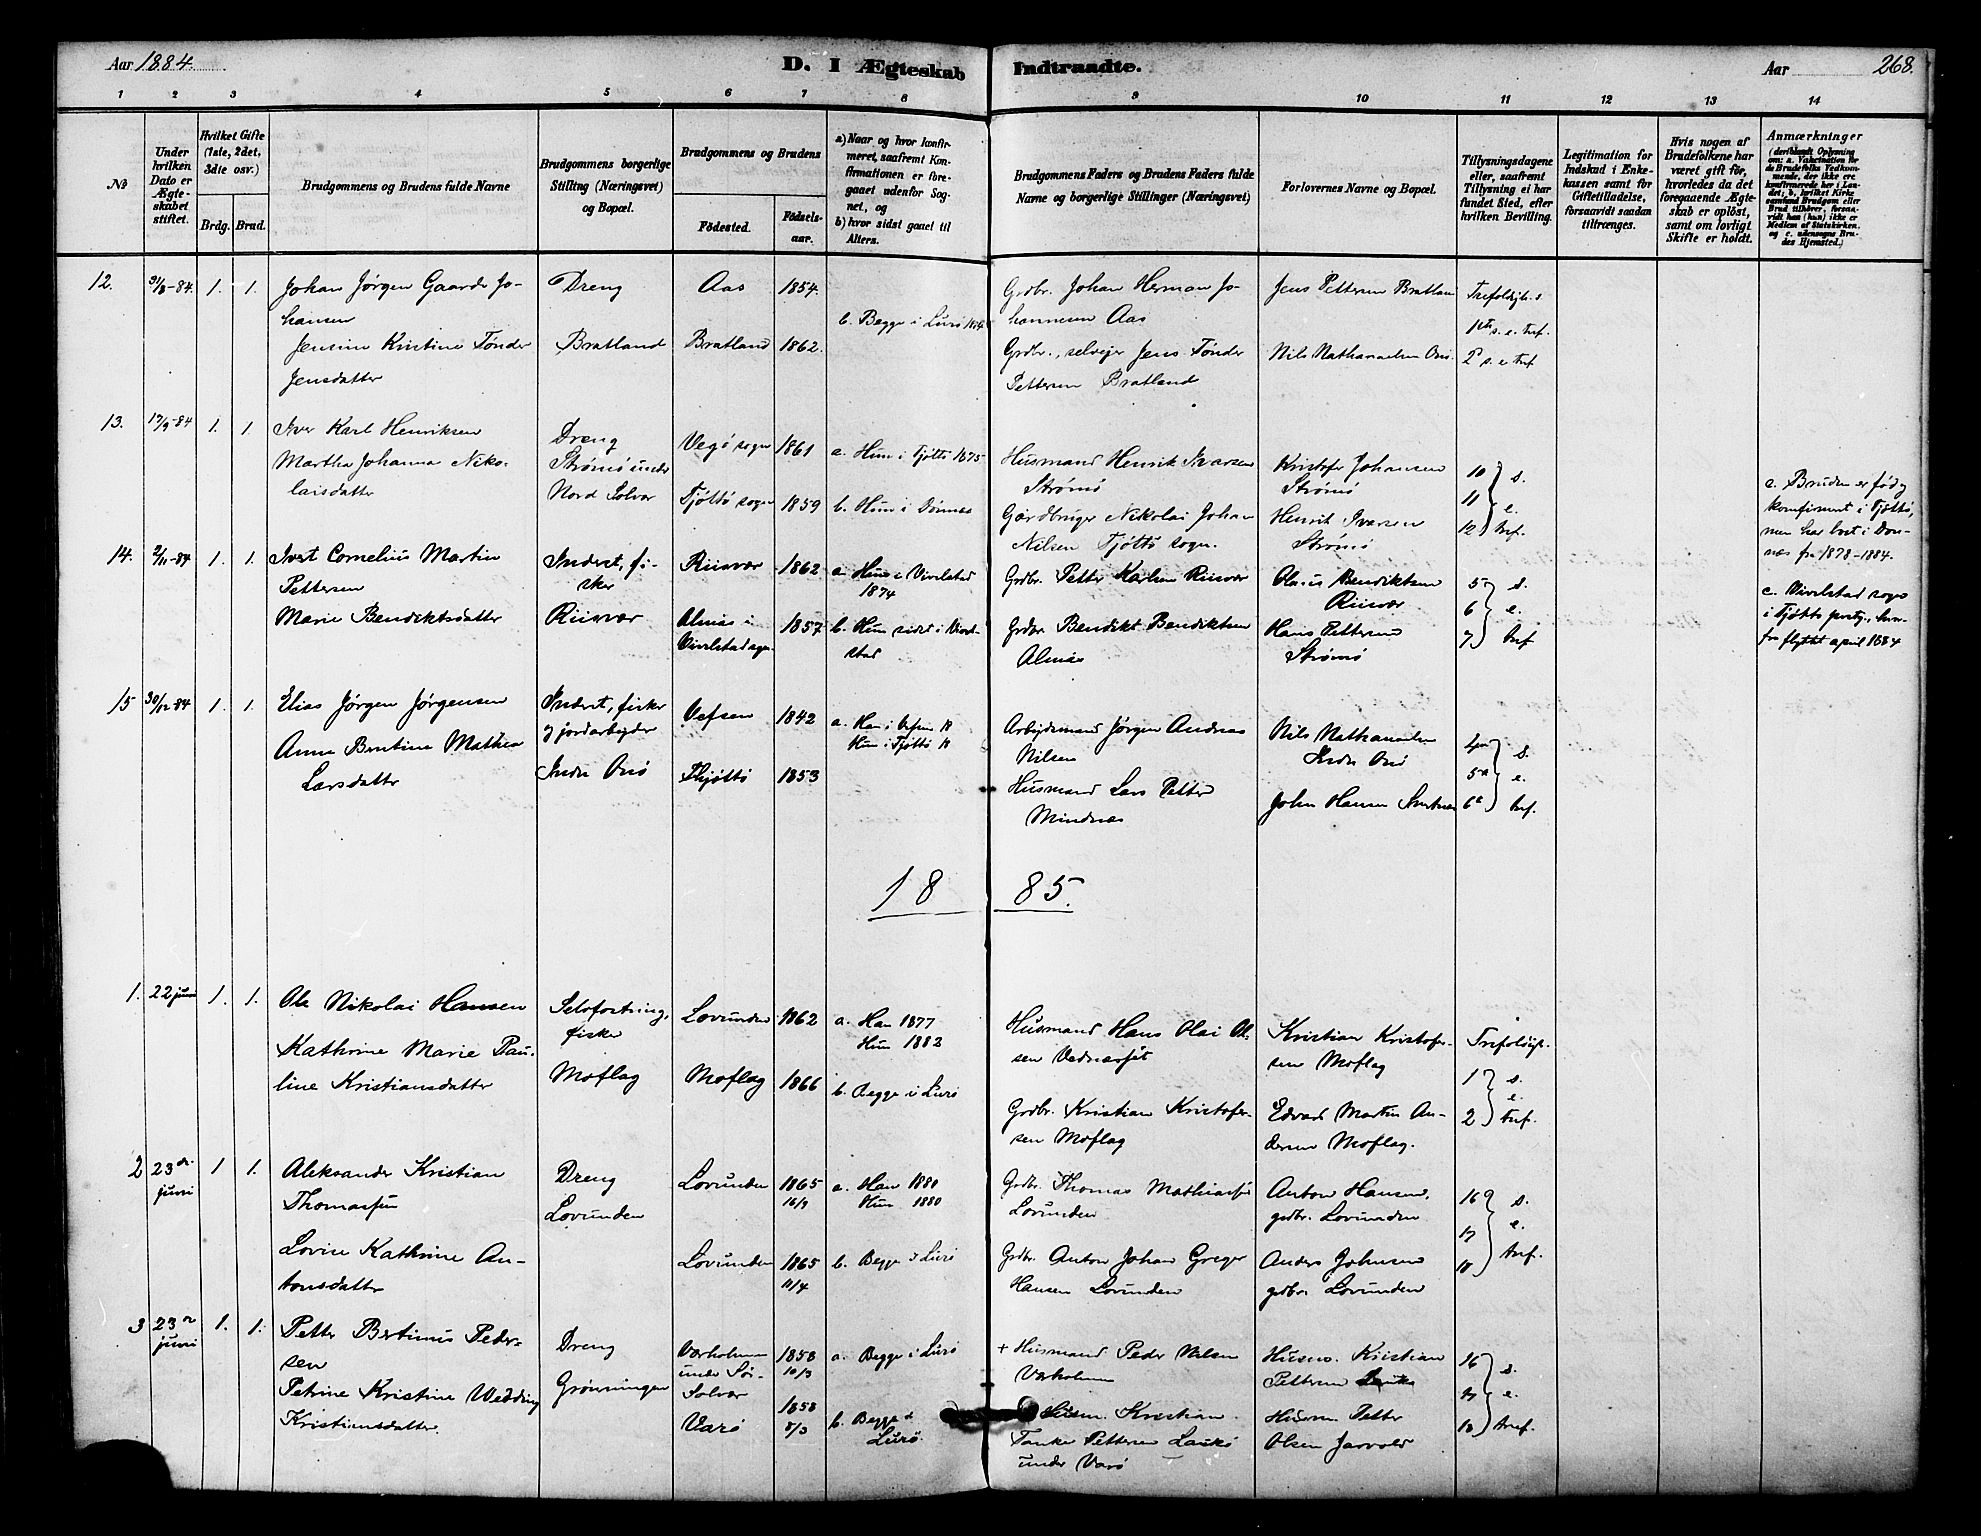 Aar 1884.
D. I Ægteskab Indtraadte.
Aar 268.
1 2 3 4 5 6 7 8 9 10 11 12 13 14
No
Under hvilken Dato er Ægteskabet stiftet.
Hvilket Gifte (1ste, 2det, 3die osv.)
Brdg. Brud.
Brudgommens og Brudens fulde Navne
Brudgommens borgerlige Stilling (Næringsvei) og Bopæl.
Brudgommens og Brudens
Fødested.
Fødselsaar.
a) Naar og hvor konfirmeret, saafremt Konfirmationen er foregaaet udenfor Sognet, og
b) hvor sidst gaaet til Alters.
Brudgommens Faders og Brudens Faders fulde Navne og borgerlige Stillinger (Næringsvei)
Forlovernes Navne og Bopæl.
Tillysningsdagene eller, saafremt Tillysning ei har fundet Sted, efter hvilken Bevilling.
Legitimation for Indskud i Enkekassen samt for Giftetilladelse, forsaavidt saadan tiltrænges.
Hvis nogen af Brudefolkene har været gift før, hvorledes da det foregaaende Ægteskab er opløst, samt om lovligt Skifte er holdt.
Anmærkninger
(deriblandt Oplysning om: a. Vakcination for de Brudefolks Vedkommende, der ikke ere konfirmerede her i Landet; b. hvilket Kirkesamfund Brudgom eller Brud tilhører, forsaavidt han (hun) ikke er Medlem af Statskirken, og c. udensogns Brudes Hjemsted.)
12. 31/8-84. 1. 1.
Johan Jørgen Gaarder Jo-
hansen
Jensine Kristine Tønder
Jensdatter
Dreng
Bratland
Aas 1854.
Bratland 1862.
b. Begge i Lurö
Grdbr. Johan Herman Jo-
hannesen Aas
Grdbr., selveier Jens Tønder
Pettersen Bratland
Jens Pettersen Bratland
Nils Nathanaelsen
Trefoldigh. s.
s. e. tref.
s. e. tref
13. 17/9-84 1. 1.
Iver Karl Henriksen
Martha Johanna Niko-
laisdatter
Dreng
Strömö under
Nord Solvær
Vegö sogn 1861
Tjöttö sogn 1859
a. Hun i Tjöttö 1875
b. Hun i Dönnæs
Husmand Henrik Ivarsen
Strömö
Gårdbruger Nikolai Johan
Nilsen Tjöttö sogn.
Kristofer Johansen
Strömö
Henrik Iversen
Strömö
10 s.
11 e.
12 tref.
c. Bruden er föd og
konfirmeret i Tjöttö,
men har boet i Dön-
næs fra 1878-1884.
14. 2/11-84 1. 1.
Ivert Cornelius Martin
Pettersen
Marie Bendiktsdatter
Inderst, fi-
sker
Riisvær
Riisvær 1862
Almås i
Vivelstad sogn 1857
a. Hun i Vivelstad
1874
b. Hun sidst i Vivel-
stad
Grdbr. Petter Karlsen Riisvær
Grdbr Bendikt Bendiktsen
Almås
Bendiktsen
Riisvær
Hans Pettersen
Strömö
5 s.
6 e.
7 tref
c. Vivelstad sogn
i Tjöttö prstg.,
fra flyttet april 1884
15 30/12 84 1. 1.
Elias Jørgen Jørgensen
Anne Bentine Mathea
Larsdatter
Inderst, fisker
og jordarbeider
Indre Onö
Vefsen 1842
Thjöttö 1853
a. Han i Vefsen 18
Hun i Tjöttö 18
Arbeidsmand Jørgen Andreas
Nilsen
Husmand Lars Petter
Mindnæs
Nils Nathanaelsen
Indre Onö
John Hansen
4 s.
5 e.
6 tref.
18 85.
1. 22 juni 1. 1.
Ole Nikolai Hansen
Kathrine Marie Pau-
line Kristiansdatter
Selvfostring,
fisker
Moflag
Lovunden 1862
Moflag 1866
a. Han 1877
Hun 1882
b. Begge i Lurö
Husmand Hans Olai Ol-
sen
Grdbr. Kristian Kristofer-
sen Moflag
Kristian Kristofer-
sen Moflag
Edvard Martin An-
dersen Moflag.
Trefoldigh.
1 s.
e.
2 tref.
2 23de juni 1 1.
Aleksander Kristian
Thomassen
Lovise Kathrine An-
tonsdatter
Dreng
Lovunden
Lovunden 1865
16/9
Lovunden 1865
11/4
a. Han 1880
Hun 1880
b. Begge i Lurö
Grdbr. Thomas Mathiassen
Lovunden
Grdbr. Anton Johan Greger
Hansen Lovunden
Anton Hansen,
grdbr. Lovunden
Anders Johnsen
grdbr. Lovunden
16 s.
17 e.
18 tref.
3 23 juni 1. 1.
Petter Bertinus Peder-
sen
Petrine Kristine Wedding
Kristiansdatter.
Dreng
Grønningen
Værholmen
under Sör-
Solvær 1858
10/3
Varö 1858
8/3
a. Begge i Lurö
b. Begge i
Lurö.
+ Husmand Peder Nilsen
Værholmen
Husm. Kristian
Tanke Pettersen Laukö
under Varö
Husm. Kristian
Pettersen
Husm Petter
Olsen
16 s.
17 e.
18 tref.